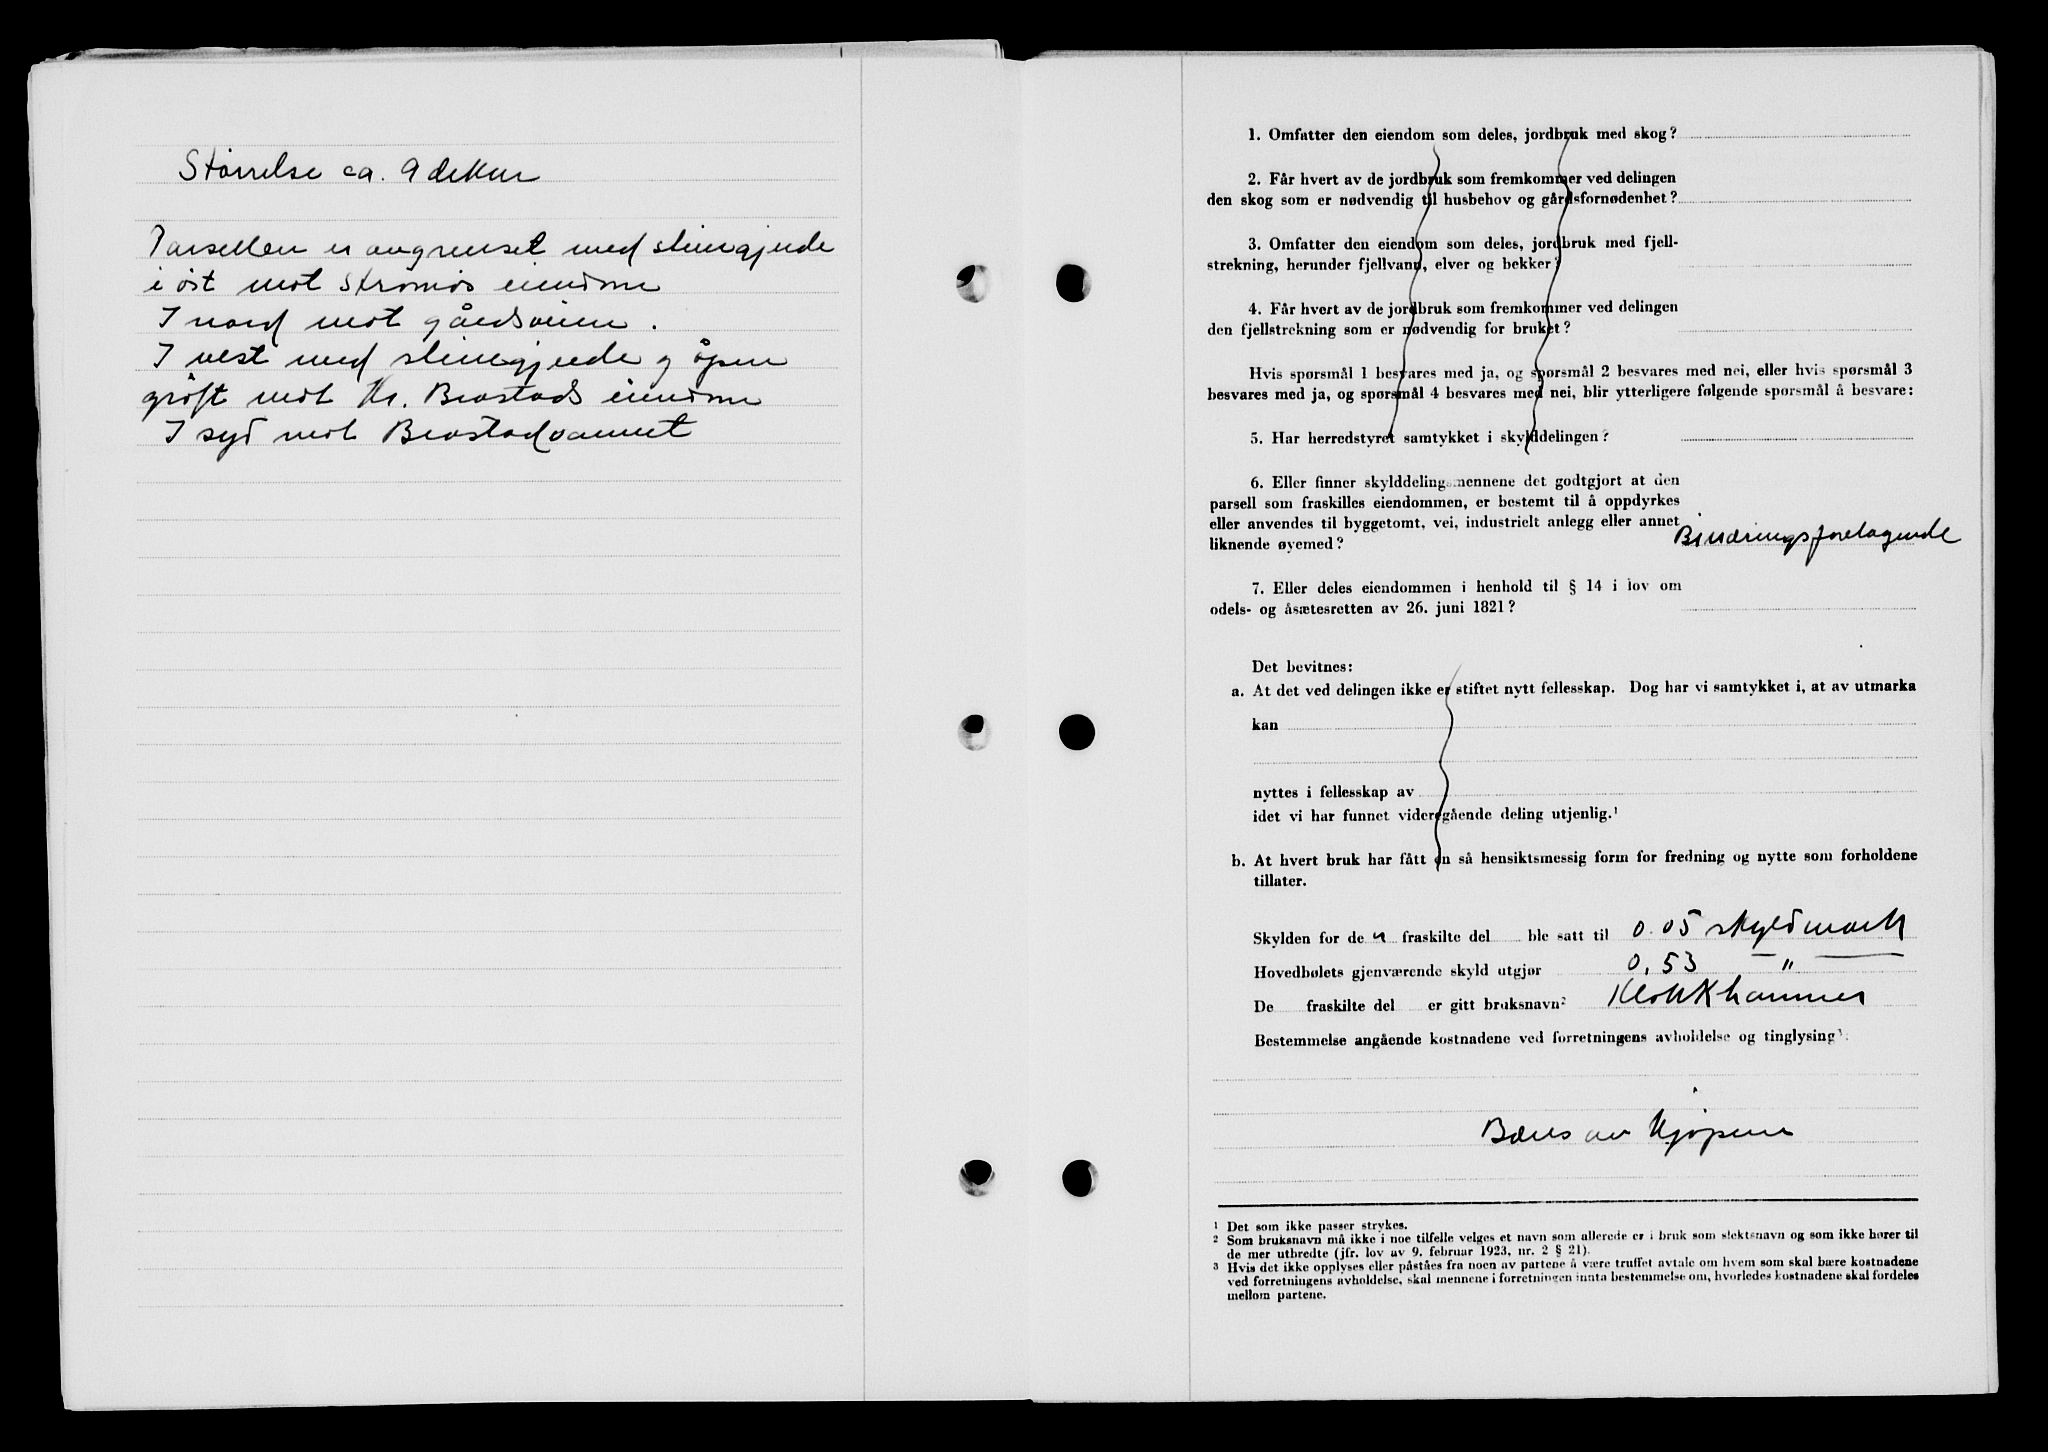 Størrelse ca. 9 dekar
Parsellen er avgrenset med steingjerde
i øst mot Strømös eiendom
I nord mot gårdsveien.
I vest med steingjerde og åpen
grøft mot Kr. Brastads eiendom
I syd mot Brastadvannet
1. Omfatter den eiendom som deles, jordbruk med skog?
2. Får hvert av de jordbruk som fremkommer ved delingen
den skog som er nødvendig til husbehov og gårdsfornødenhet?
3. Omfatter den eiendom som deles, jordbruk med fjell-
strekning, herunder fjellvann, elver og bekker?
4. Får hvert av de jordbruk som fremkommer ved delingen
den fjellstrekning som er nødvendig for bruket?
Hvis spørsmål 1 besvares med ja, og spørsmål 2 besvares med nei, eller hvis spørsmål 3
besvares med ja, og spørsmål 4 besvares med nei, blir ytterligere følgende spørsmål å besvare:
5. Har herredstyret samtykket i skylddelingen?
6. Eller finner skylddelingsmennene det godtgjort at den
parsell som fraskilles eiendommen, er bestemt til å oppdyrkes
eller anvendes til byggetomt, vei, industrielt anlegg eller annet
liknende øyemed? Binæringsforetagende
7. Eller deles eiendommen i henhold til § 14 i lov om
odels- og åsætesretten av 26. juni 1821?
Det bevitnes:
a. At det ved delingen ikke er stiftet nytt fellesskap. Dog har vi samtykket i, at av utmarka
kan
nyttes i fellesskap av
idet vi har funnet videregående deling utjenlig.¹
b. At hvert bruk har fått en så hensiktsmessig form for fredning og nytte som forholdene
tillater.
Skylden for den fraskilte del ble satt til 0.05 skyldmark
Hovedbølets gjenværende skyld utgjør 0,53 "
De fraskilte del er gitt bruksnavn² Klokkhammer
Bestemmelse angående kostnadene ved forretningens avholdelse og tinglysing³:
Bæres av kjøperen
¹ Det som ikke passer strykes.
² Som bruksnavn må ikke i noe tilfelle velges et navn som allerede er i bruk som slektsnavn og som ikke hører til
de mer utbredte (jfr. lov av 9. februar 1923, nr. 2 § 21).
³ Hvis det ikke opplyses eller påståes fra noen av partene å være truffet avtale om hvem som skal bære kostnadene
ved forretningens avholdelse, skal mennene i forretningen innta bestemmelse om, hvorledes kostnadene skal fordeles
mellom partene.